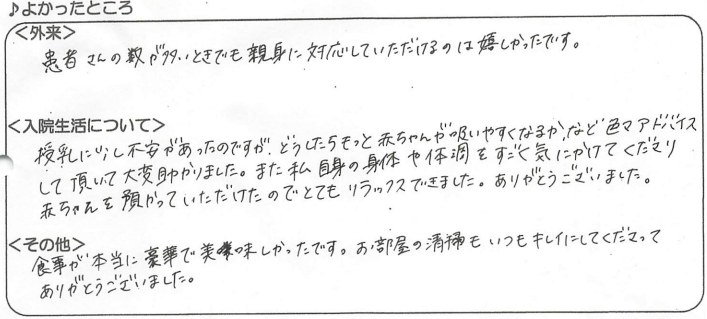 ♪よかったところ
＜外来＞
患者さんの数が多いときでも親身に対応していただけるのは嬉しかったです。
＜入院生活について＞
授乳に少し不安があったのですが、どうしたらもっと赤ちゃんが吸いやすくなるか、など色々アドバイス
して頂いて大変助かりました。また私自身の身体や体調をすごく気にかけてくださり
赤ちゃんを預かっていただけたのでとてもリラックスできました。ありがとうございました。
＜その他＞
食事が本当に豪華で美味しかったです。お部屋の清掃もいつもキレイにしてくださって
ありがとうございました。